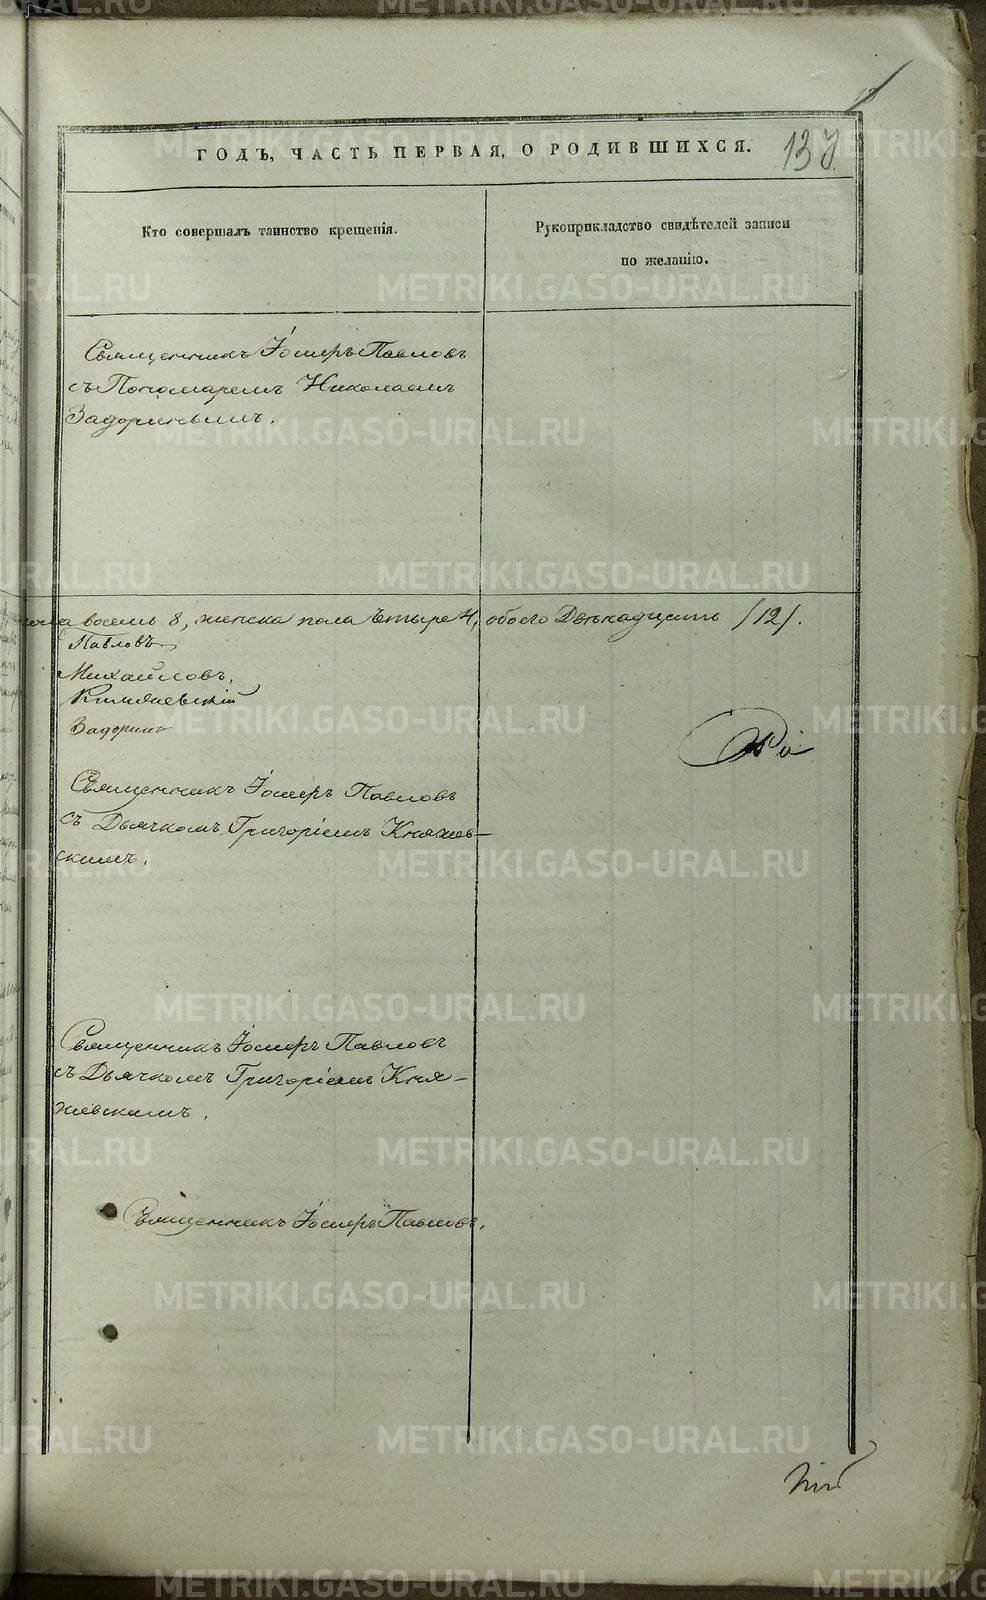 137
ГОДЪ, ЧАСТЬ ПЕРВАЯ, О РОДИВШИХСЯ.
Кто совершалъ таинство крещенія.
Рукоприкладство свидѣтелей записи
по желанію.
Священникъ Іосифъ Павловъ
съ Пономаремъ Николаемъ
Задоринымъ.
восемь 8, женска пола четыре 4, обоего Двенадцать /12/.
Павловъ
Михайловъ.
Княжевскій
Задоринъ
Священникъ Іосифъ Павловъ
съ Дьячкомъ Григоріемъ Княжев-
скимъ.
Священникъ Іосифъ Павловъ
съ Дьячкомъ Григоріемъ Кня-
жевскимъ.
Священникъ Іосифъ Павловъ.
METRIKI.GASO-URAL.RU